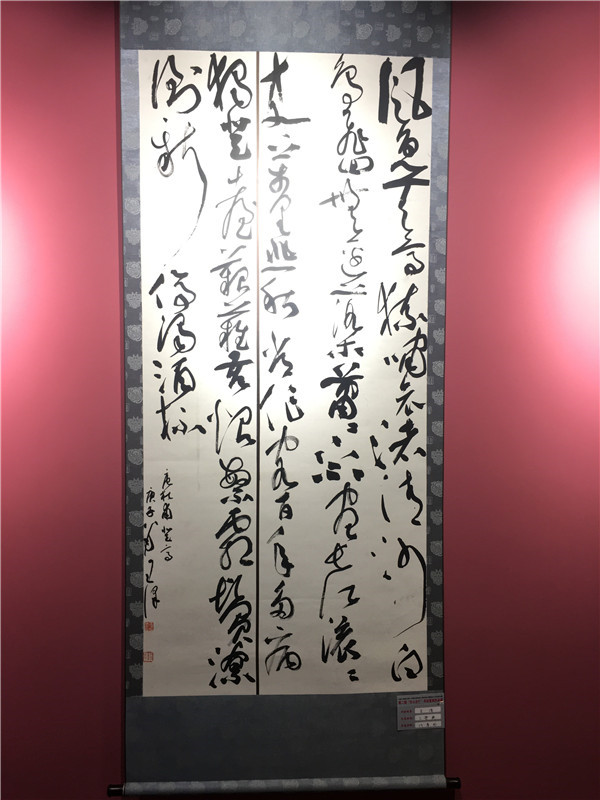 風急天高猿嘯哀渚清沙白
鳥飛迴無邊落木蕭〻下不盡長江滾〻
来万里悲秋常作客百年多病
獨登臺艱難苦恨繁霜鬢潦
倒新停濁酒杯
唐杜甫登高
庚子